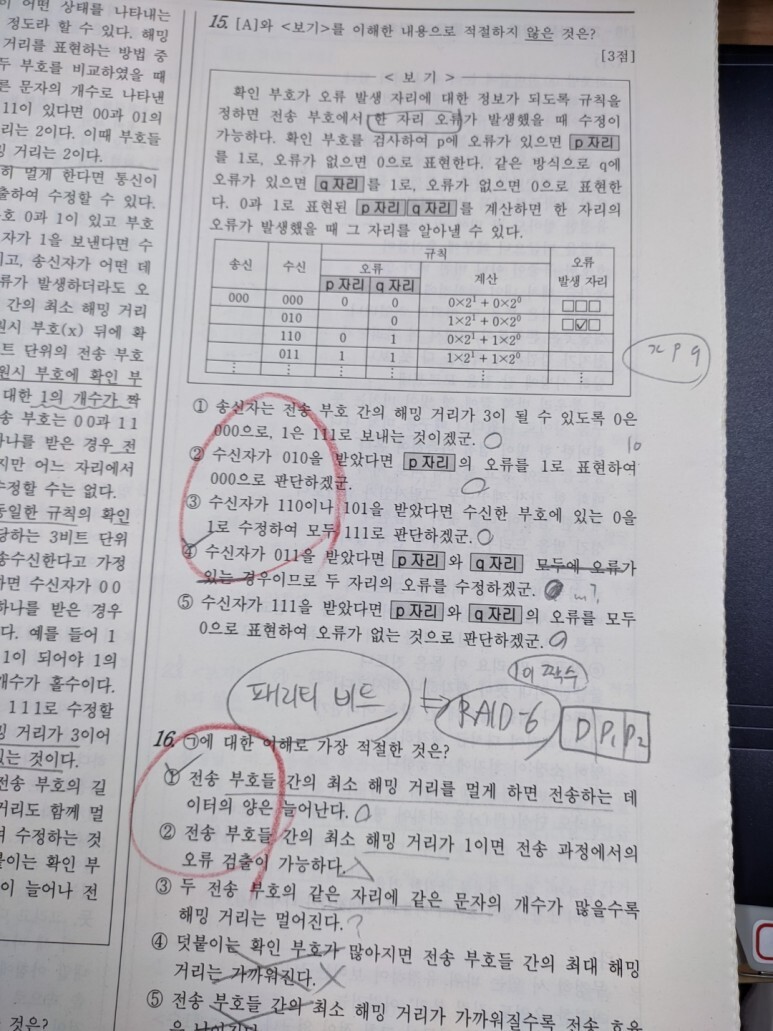 히 어떤 상태를 나타내는
정도라 할 수 있다. 해밍
거리를 표현하는 방법 중
두 부호를 비교하였을 때
른 문자의 개수로 나타낸
11이 있다면 00과 01의
리는 2이다. 이때 부호들
밍 거리는 2이다.
히 멀게 한다면 통신이
출하여 수정할 수 있다.
호 0과 1이 있고 부호
자가 1을 보낸다면 수
이고, 송신자가 어떤 데
류가 발생하더라도 오
간의 최소 해밍 거리
원시 부호(x) 뒤에 확
트 단위의 전송 부호
원시 부호에 확인 부
대한 1의 개수가 짝
송 부호는 00과 11
하나를 받은 경우 전
지만 어느 자리에서
수정할 수는 없다.
동일한 규칙의 확인
당하는 3비트 단위
송수신한다고 가정
하면 수신자가 00
하나를 받은 경우
다. 예를 들어 1
1이 되어야 1의
개수가 홀수이다.
111로 수정할
밍 거리가 3이어
있는 것이다.
전송 부호의 길
거리도 함께 멀
여 수정하는 것
붙이는 확인 부
이 늘어나 전
은 것은?
15. [A]와 <보기>를 이해한 내용으로 적절하지 않은 것은?
[3점]
< 보 기 >
확인 부호가 오류 발생 자리에 대한 정보가 되도록 규칙을
정하면 전송 부호에서 한 자리 오류가 발생했을 때 수정이
가능하다. 확인 부호를 검사하여 p에 오류가 있으면 p 자리
를 1로, 오류가 없으면 0으로 표현한다. 같은 방식으로 q에
오류가 있으면 q 자리 를 1로, 오류가 없으면 0으로 표현한
다. 0과 1로 표현된 p 자리 q 자리 를 계산하면 한 자리의
오류가 발생했을 때 그 자리를 알아낼 수 있다.
송신 수신 규칙 오류 발생 자리
오류 계산
p 자리 q 자리
000 000 0 0 0×2¹ + 0×2⁰ □□□
010 0 1×2¹ + 0×2⁰ □☑□
110 0 1 0×2¹ + 1×2⁰
011 1 1 1×2¹ + 1×2⁰
⋮ ⋮ ⋮ ⋮ ⋮ ⋮
x p q
① 송신자는 전송 부호 간의 해밍 거리가 3이 될 수 있도록 0은
000으로, 1은 111로 보내는 것이겠군.
10
② 수신자가 010을 받았다면 p 자리 의 오류를 1로 표현하여
000으로 판단하겠군.
③ 수신자가 110이나 101을 받았다면 수신한 부호에 있는 0을
1로 수정하여 모두 111로 판단하겠군.
④ 수신자가 011을 받았다면 p 자리 와 q 자리 모두에 오류가
있는 경우이므로 두 자리의 오류를 수정하겠군.
⑤ 수신자가 111을 받았다면 p 자리 와 q 자리 의 오류를 모두
0으로 표현하여 오류가 없는 것으로 판단하겠군.
1이 짝수
패리티 비트
RAID-6
D P₁ P₂
16. ㉠에 대한 이해로 가장 적절한 것은?
① 전송 부호들 간의 최소 해밍 거리를 멀게 하면 전송하는 데
이터의 양은 늘어난다.
② 전송 부호들 간의 최소 해밍 거리가 1이면 전송 과정에서의
오류 검출이 가능하다.
③ 두 전송 부호의 같은 자리에 같은 문자의 개수가 많을수록
해밍 거리는 멀어진다. ?
④ 덧붙이는 확인 부호가 많아지면 전송 부호들 간의 최대 해밍
거리는 가까워진다.
⑤ 전송 부호들 간의 최소 해밍 거리가 가까워질수록 전송 효율